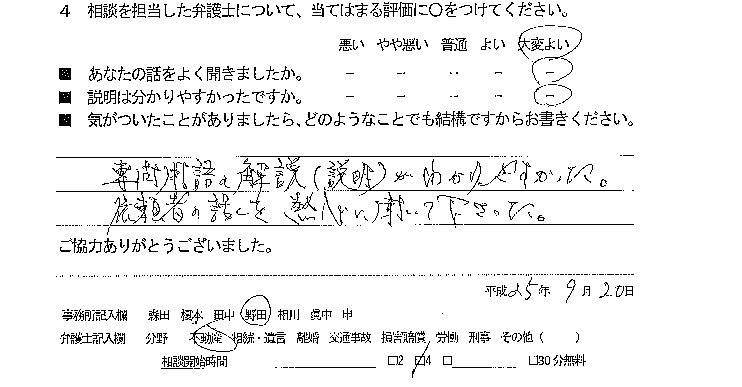 4 相談を担当した弁護士について、当てはまる評価に○をつけてください。
悪い やや悪い 普通 よい 大変よい
■ あなたの話をよく聞きましたか。 − − − − −
■ 説明は分かりやすかったですか。 − − − − −
■ 気がついたことがありましたら、どのようなことでも結構ですからお書きください。
専門用語の解説(説明)がわかりやすかった。
依頼者の話しを熱心に聴いて下さった。
ご協力ありがとうございました。
平成25年 9月20日
事務所記入欄 森田 榎本 田中 野田 相川 眞中 申
弁護士記入欄 分野 不動産 相続・遺言 離婚 交通事故 損害賠償 労働 刑事 その他( )
相談開始時間 □2 □4 □ □30分無料